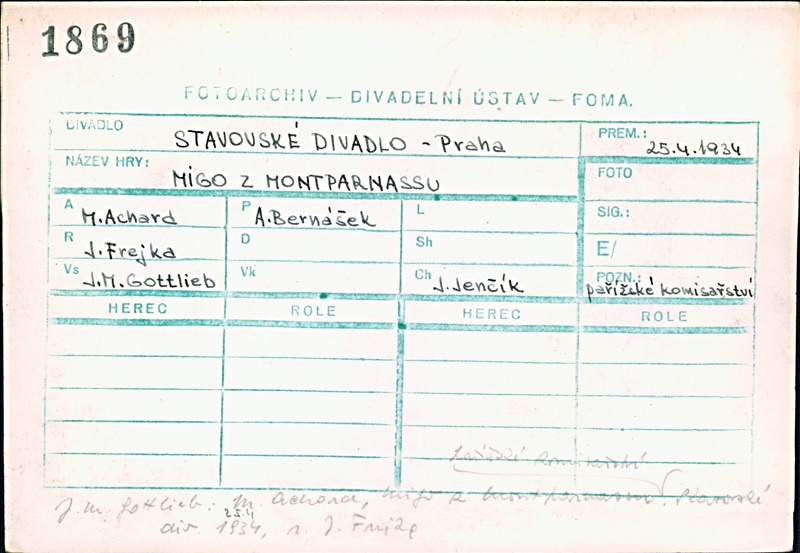 1869
FOTOARCHIV — DIVADELNÍ ÚSTAV — FOMA.
DIVADLO STAVOVSKÉ DIVADLO - Praha PREM.: 25.4.1934
NÁZEV HRY: MIGO Z MONTPARNASSU FOTO
A M.Achard P A.Bernášek L SIG.:
R J.Frejka D Sh E/
Vs J.M.Gottlieb Vk Ch J.Jenčík POZN.: pařížské komisařství
HEREC ROLE HEREC ROLE
pařížské komisařství
J. M. Gottlieb: M. Achard, Migo z Montparnassu. Stavovské
25.4
div. 1934, r. J. Frejka